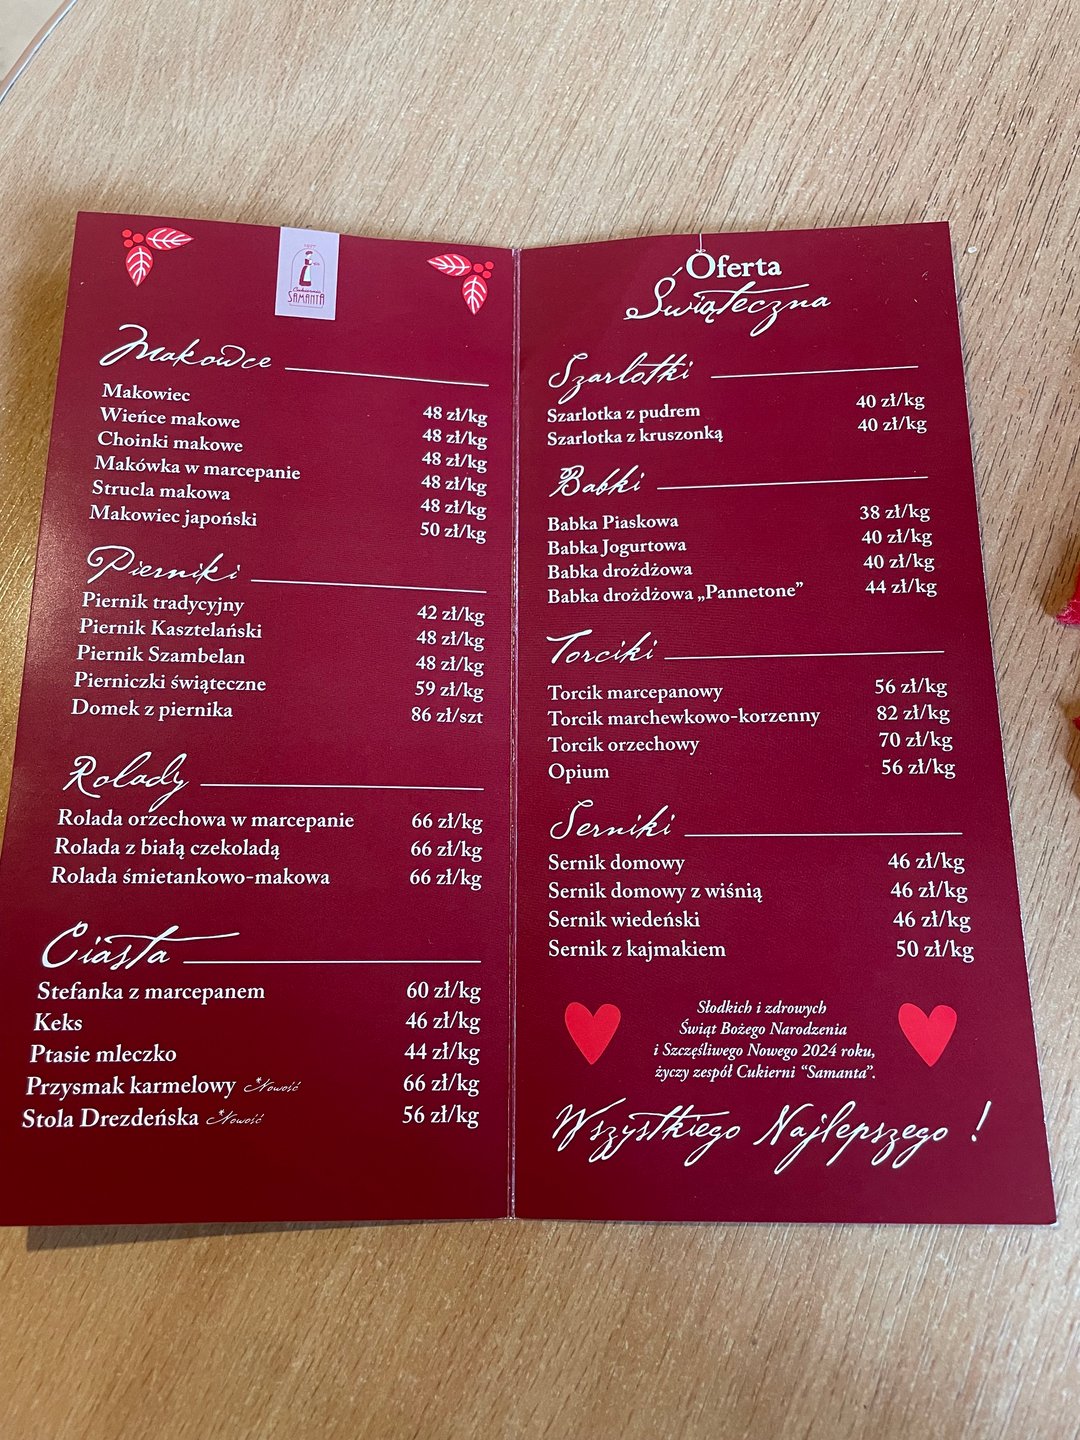 1887
Cukiernia
SAMANTA
Makowce
Makowiec 48 zł/kg
Wieńce makowe 48 zł/kg
Choinki makowe 48 zł/kg
Makówka w marcepanie 48 zł/kg
Strucla makowa 48 zł/kg
Makowiec japoński 50 zł/kg
Pierniki
Piernik tradycyjny 42 zł/kg
Piernik Kasztelański 48 zł/kg
Piernik Szambelan 48 zł/kg
Pierniczki świąteczne 59 zł/kg
Domek z piernika 86 zł/szt
Rolady
Rolada orzechowa w marcepanie 66 zł/kg
Rolada z białą czekoladą 66 zł/kg
Rolada śmietankowo-makowa 66 zł/kg
Ciasta
Stefanka z marcepanem 60 zł/kg
Keks 46 zł/kg
Ptasie mleczko 44 zł/kg
Przysmak karmelowy *Nowość 66 zł/kg
Stola Drezdeńska *Nowość 56 zł/kg
Oferta
Świąteczna
Szarlotki
Szarlotka z pudrem 40 zł/kg
Szarlotka z kruszonką 40 zł/kg
Babki
Babka Piaskowa 38 zł/kg
Babka Jogurtowa 40 zł/kg
Babka drożdżowa 40 zł/kg
Babka drożdżowa „Pannetone” 44 zł/kg
Torciki
Torcik marcepanowy 56 zł/kg
Torcik marchewkowo-korzenny 82 zł/kg
Torcik orzechowy 70 zł/kg
Opium 56 zł/kg
Serniki
Sernik domowy 46 zł/kg
Sernik domowy z wiśnią 46 zł/kg
Sernik wiedeński 46 zł/kg
Sernik z kajmakiem 50 zł/kg
Słodkich i zdrowych
Świąt Bożego Narodzenia
i Szczęśliwego Nowego 2024 roku,
życzy zespół Cukierni “Samanta”.
Wszystkiego Najlepszego !